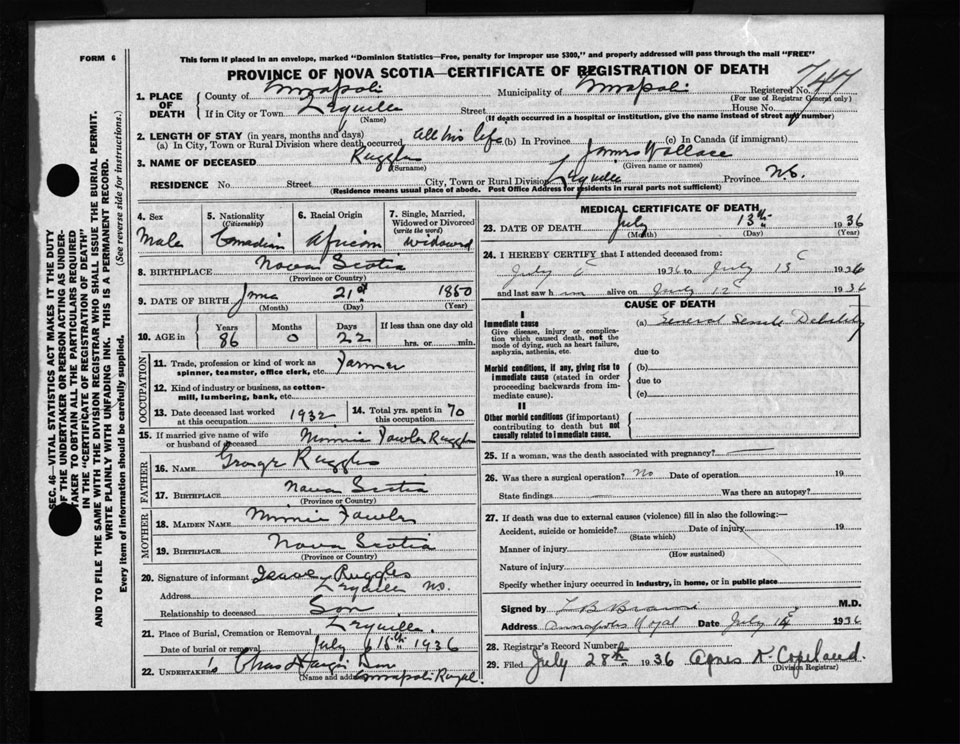 FORM 6
This form if placed in an envelope, marked "Dominion Statistics—Free, penalty for improper use $300," and properly addressed will pass through the mail "FREE"
PROVINCE OF NOVA SCOTIA—CERTIFICATE OF REGISTRATION OF DEATH
SEC. 46—VITAL STATISTICS ACT MAKES IT THE DUTY
OF THE UNDERTAKER OR PERSON ACTING AS UNDER-
TAKER TO OBTAIN ALL THE PARTICULARS REQUIRED
IN THE "CERTIFICATE OF REGISTRATION OF DEATH"
AND TO FILE THE SAME WITH THE DIVISION REGISTRAR WHO SHALL ISSUE THE BURIAL PERMIT.
WRITE PLAINLY WITH UNFADING INK. THIS IS A PERMANENT RECORD.
Every item of information should be carefully supplied. (See reverse side for instructions.)
1. PLACE OF DEATH County of Annapolis Municipality of Annapolis Registered No. 747
(For use of Registrar General only)
If in City or Town Lequille Street House No.
(Name) (If death occurred in a hospital or institution, give the name instead of street and number)
2. LENGTH OF STAY (in years, months and days)
(a) In City, Town or Rural Division where death occurred all his life (b) In Province (c) In Canada (if immigrant)
3. NAME OF DECEASED Ruggles James Wallace
(Surname) (Given name or names)
RESIDENCE No. Street City, Town or Rural Division Lequille Province N.S.
(Residence means usual place of abode. Post Office Address for residents in rural parts not sufficient)
4. Sex 5. Nationality (Citizenship) 6. Racial Origin 7. Single, Married, Widowed or Divorced (write the word)
Male Canadian African widowed
8. BIRTHPLACE Nova Scotia
(Province or Country)
9. DATE OF BIRTH June 21st 1850
(Month) (Day) (Year)
10. AGE in Years Months Days If less than one day old
86 0 22 hrs. or min.
OCCUPATION
11. Trade, profession or kind of work as spinner, teamster, office clerk, etc. Farmer
12. Kind of industry or business, as cotton-mill, lumbering, bank, etc.
13. Date deceased last worked at this occupation 1932 14. Total yrs. spent in this occupation 70
15. If married give name of wife or husband of deceased Minnie Fowler Ruggles
FATHER
16. NAME George Ruggles
17. BIRTHPLACE Nova Scotia
(Province or Country)
MOTHER
18. MAIDEN NAME Minnie Fowler
19. BIRTHPLACE Nova Scotia
(Province or Country)
20. Signature of informant Isaac Ruggles
Address Lequille N.S.
Relationship to deceased Son
21. Place of Burial, Cremation or Removal Lequille.
Date of burial or removal July 15th 1936
22. UNDERTAKER'S Chas
(Name and address) Annapolis Royal.
MEDICAL CERTIFICATE OF DEATH
23. DATE OF DEATH July 13th 1936
(Month) (Day) (Year)
24. I HEREBY CERTIFY that I attended deceased from:
July 1936 to July 13 1936
and last saw him alive on July 12 1936
CAUSE OF DEATH
I
Immediate cause (a) General Senile Debility
Give disease, injury or complication which caused death, not the mode of dying, such as heart failure, asphyxia, asthenia, etc.
due to
Morbid conditions, if any, giving rise to immediate cause (stated in order proceeding backwards from immediate cause). (b)
due to
(c)
II
Other morbid conditions (if important) contributing to death but not causally related to immediate cause.
25. If a woman, was the death associated with pregnancy?
26. Was there a surgical operation? No Date of operation 19
State findings Was there an autopsy?
27. If death was due to external causes (violence) fill in also the following:—
Accident, suicide or homicide? Date of injury 19
(State which)
Manner of injury
(How sustained)
Nature of injury
Specify whether injury occurred in industry, in home, or in public place
Signed by L B Braine M.D.
Address Annapolis Royal Date July 14 1936
28. Registrar's Record Number
29. Filed July 28th 1936 Agnes K Copeland.
(Division Registrar)